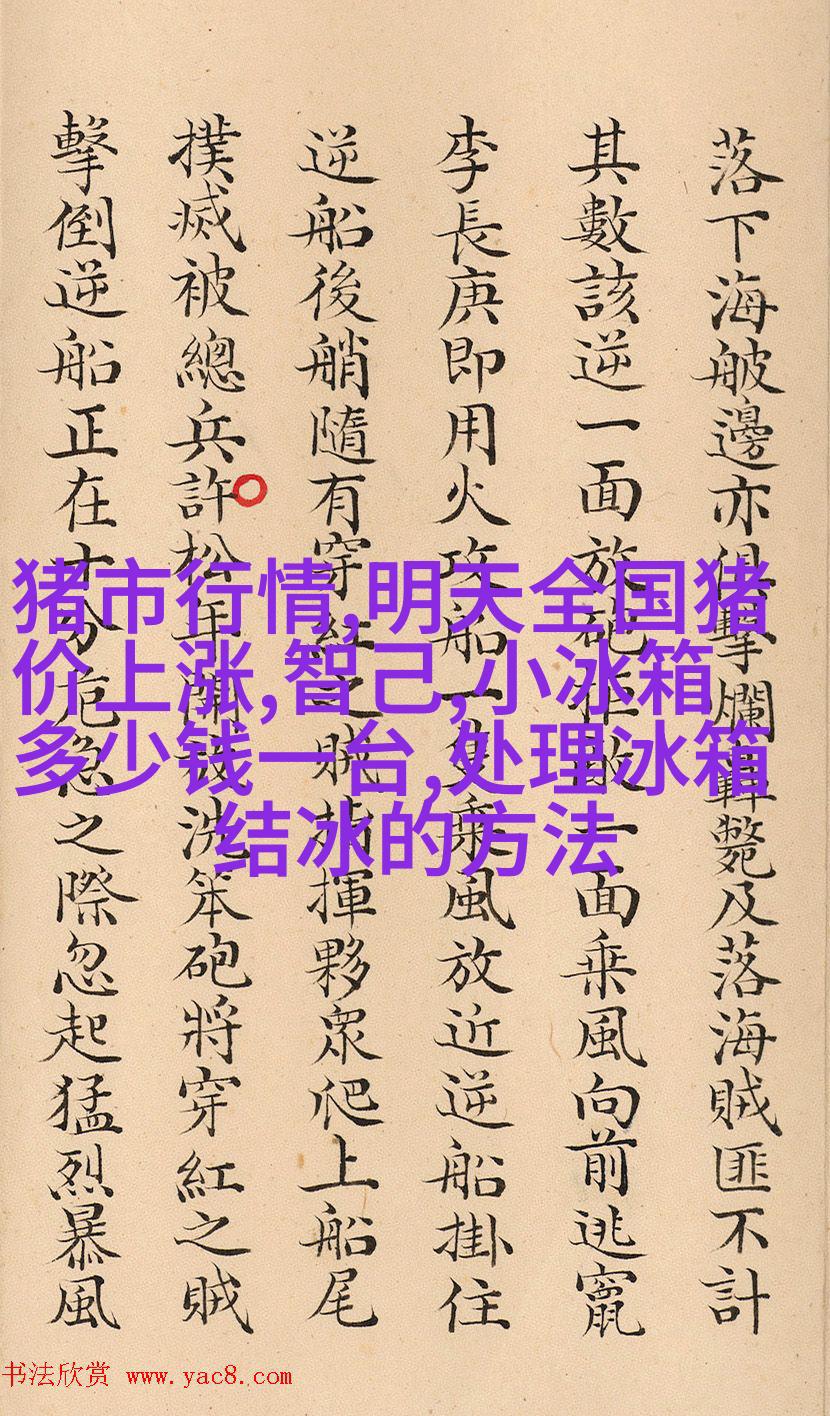 落下海舨邊亦俱擊爛轟斃及落海賊匪不計
其數該逆一面放砲拒敵一面乘風向前逃竄
李長庚即用火攻船一隻乘風放近逆船掛住
逆船後艄隨有穿紅之賊指揮夥眾爬上船尾
撲滅被總兵許松年開放洗笨砲將穿紅之賊
擊倒逆船正在十分危急之際忽起猛烈暴風
猪市行情,明天全国猪
价上涨,智己,小冰箱
多少钱一台,处理冰箱
结冰的方法
书法欣赏 www.yac8.com